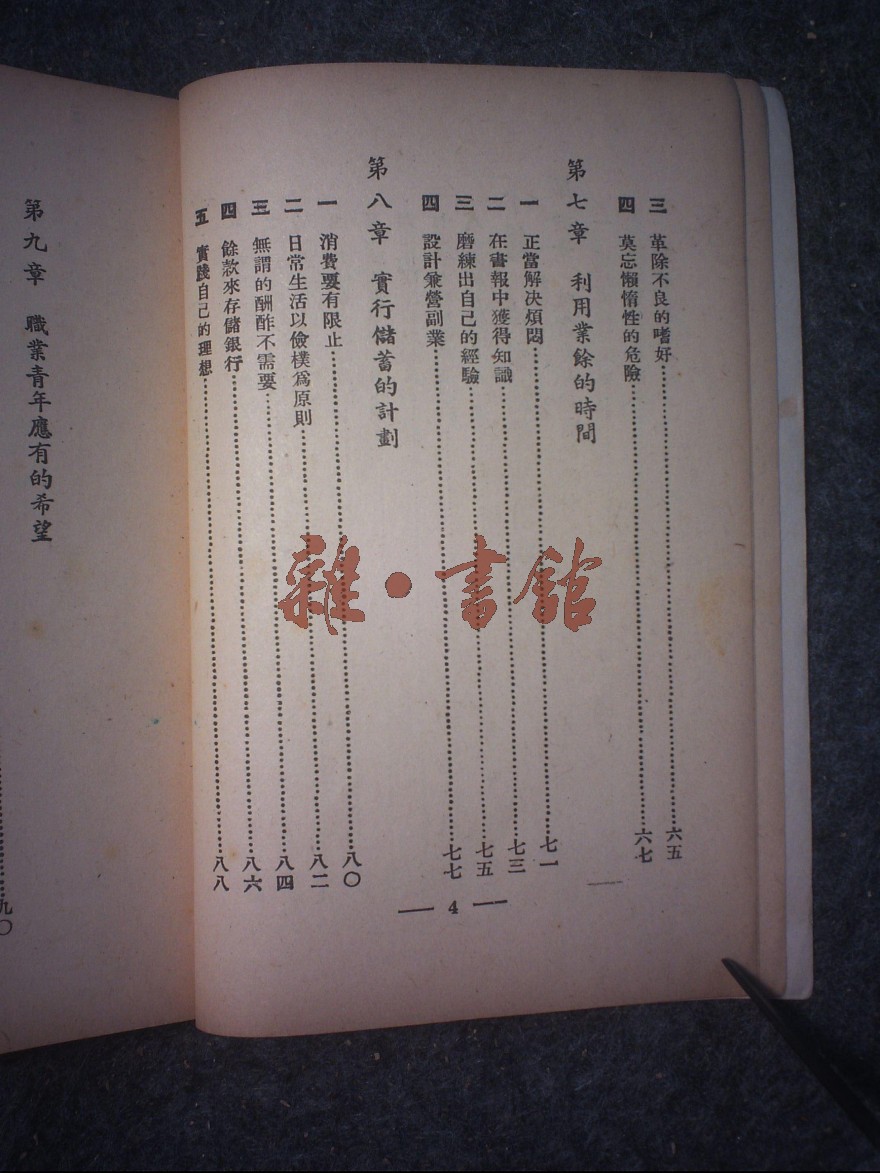 三 革除不良的嗜好……六五
四 莫忘懶惰性的危險……六七
第七章 利用業餘的時間
一 正當解決煩悶……七一
二 在書報中獲得知識……七三
三 磨練出自己的經驗……七五
四 設計兼營副業……七七
第八章 實行儲蓄的計劃
一 消費要有限止……八〇
二 日常生活以儉樸爲原則……八二
三 無謂的酬酢不需要……八四
四 餘款來存儲銀行……八六
五 實踐自己的理想……八八
— 4 —
第九章 職業青年應有的希望
……九〇
雜·書館